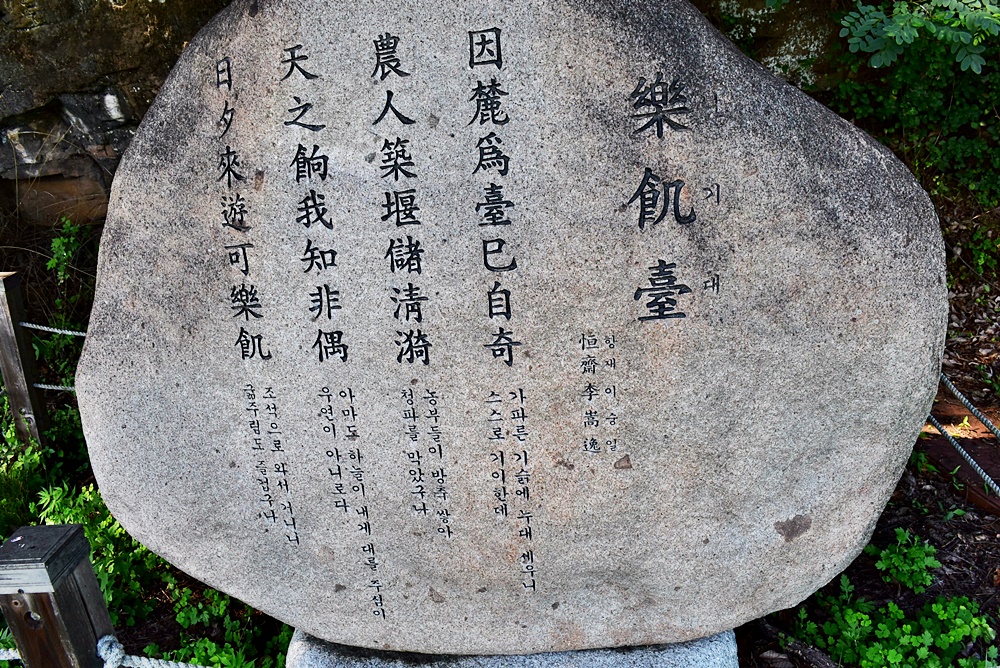 樂飢臺
낙기대
恒齋李嵩逸
항재이숭일
因麓爲臺已自奇
가파른 기슭에 누대 세우니
스스로 기이한데
農人築堰儲淸漪
농부들이 방축 쌓아
청파를 막았구나
天之餉我知非偶
아마도 하늘이 내게 대를 주심이
우연이 아니로다
日夕來遊可樂飢
조석으로 와서 거니니
굶주림도 즐겁구나